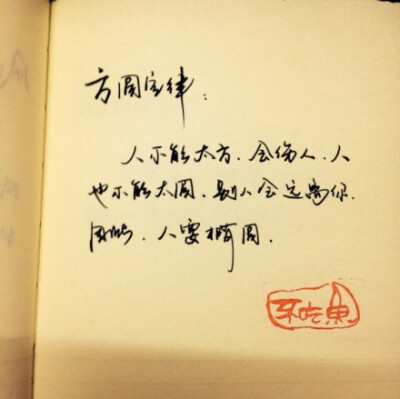 方圆定律：
人不能太方.会伤人.人
也不能太圆.别人会远离你.
因此.人要椭圆.
不吃鱼